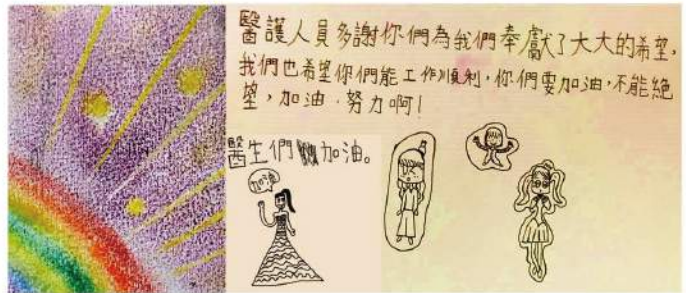 醫護人員多謝你們為我們奉獻了大大的希望,
我們也希望你們能工作順利,你們要加油,不能絶
望,加油.努力啊!
醫生們加油。
加油